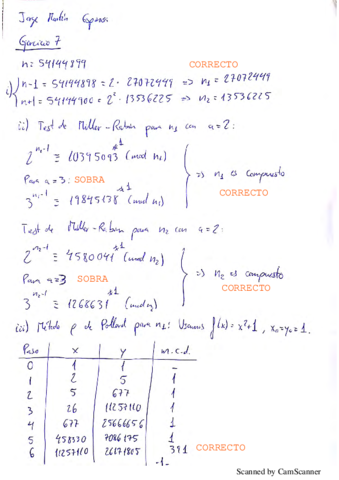 Jorge Martín Espinosa
Ejercicio 7
n = 54144899 CORRECTO
i) n-1 = 54144898 = 2 · 27072449 => n₁ = 27072449
n+1 = 54144900 = 2² · 13536225 => n₂ = 13536225
ii) Test de Miller-Rabin para n₁ con a = 2:
2^(n₁-1) ≡ 20345093 (mod n₁) ≢1
Para a = 3: SOBRA => n₁ es compuesto
3^(n₁-1) ≡ 19845138 (mod n₁) ≢1 CORRECTO
Test de Miller-Rabin para n₂ con a = 2:
2^(n₂-1) ≡ 4580041 (mod n₂) ≢1
Para a=3 SOBRA => n₂ es compuesto
3^(n₂-1) ≡ 1268631 (mod n₂) ≢1 CORRECTO
iii) Método ρ de Pollard para n₁: Usamos f(x) = x²+1, x₀=y₀=1.
Paso x y m.c.d.
0 1 1 -
1 2 5 1
2 5 677 1
3 26 11257110 1
4 677 25666656 1
5 458330 7086175 1
6 11257110 26171805 391 CORRECTO
-1-
Scanned by CamScanner